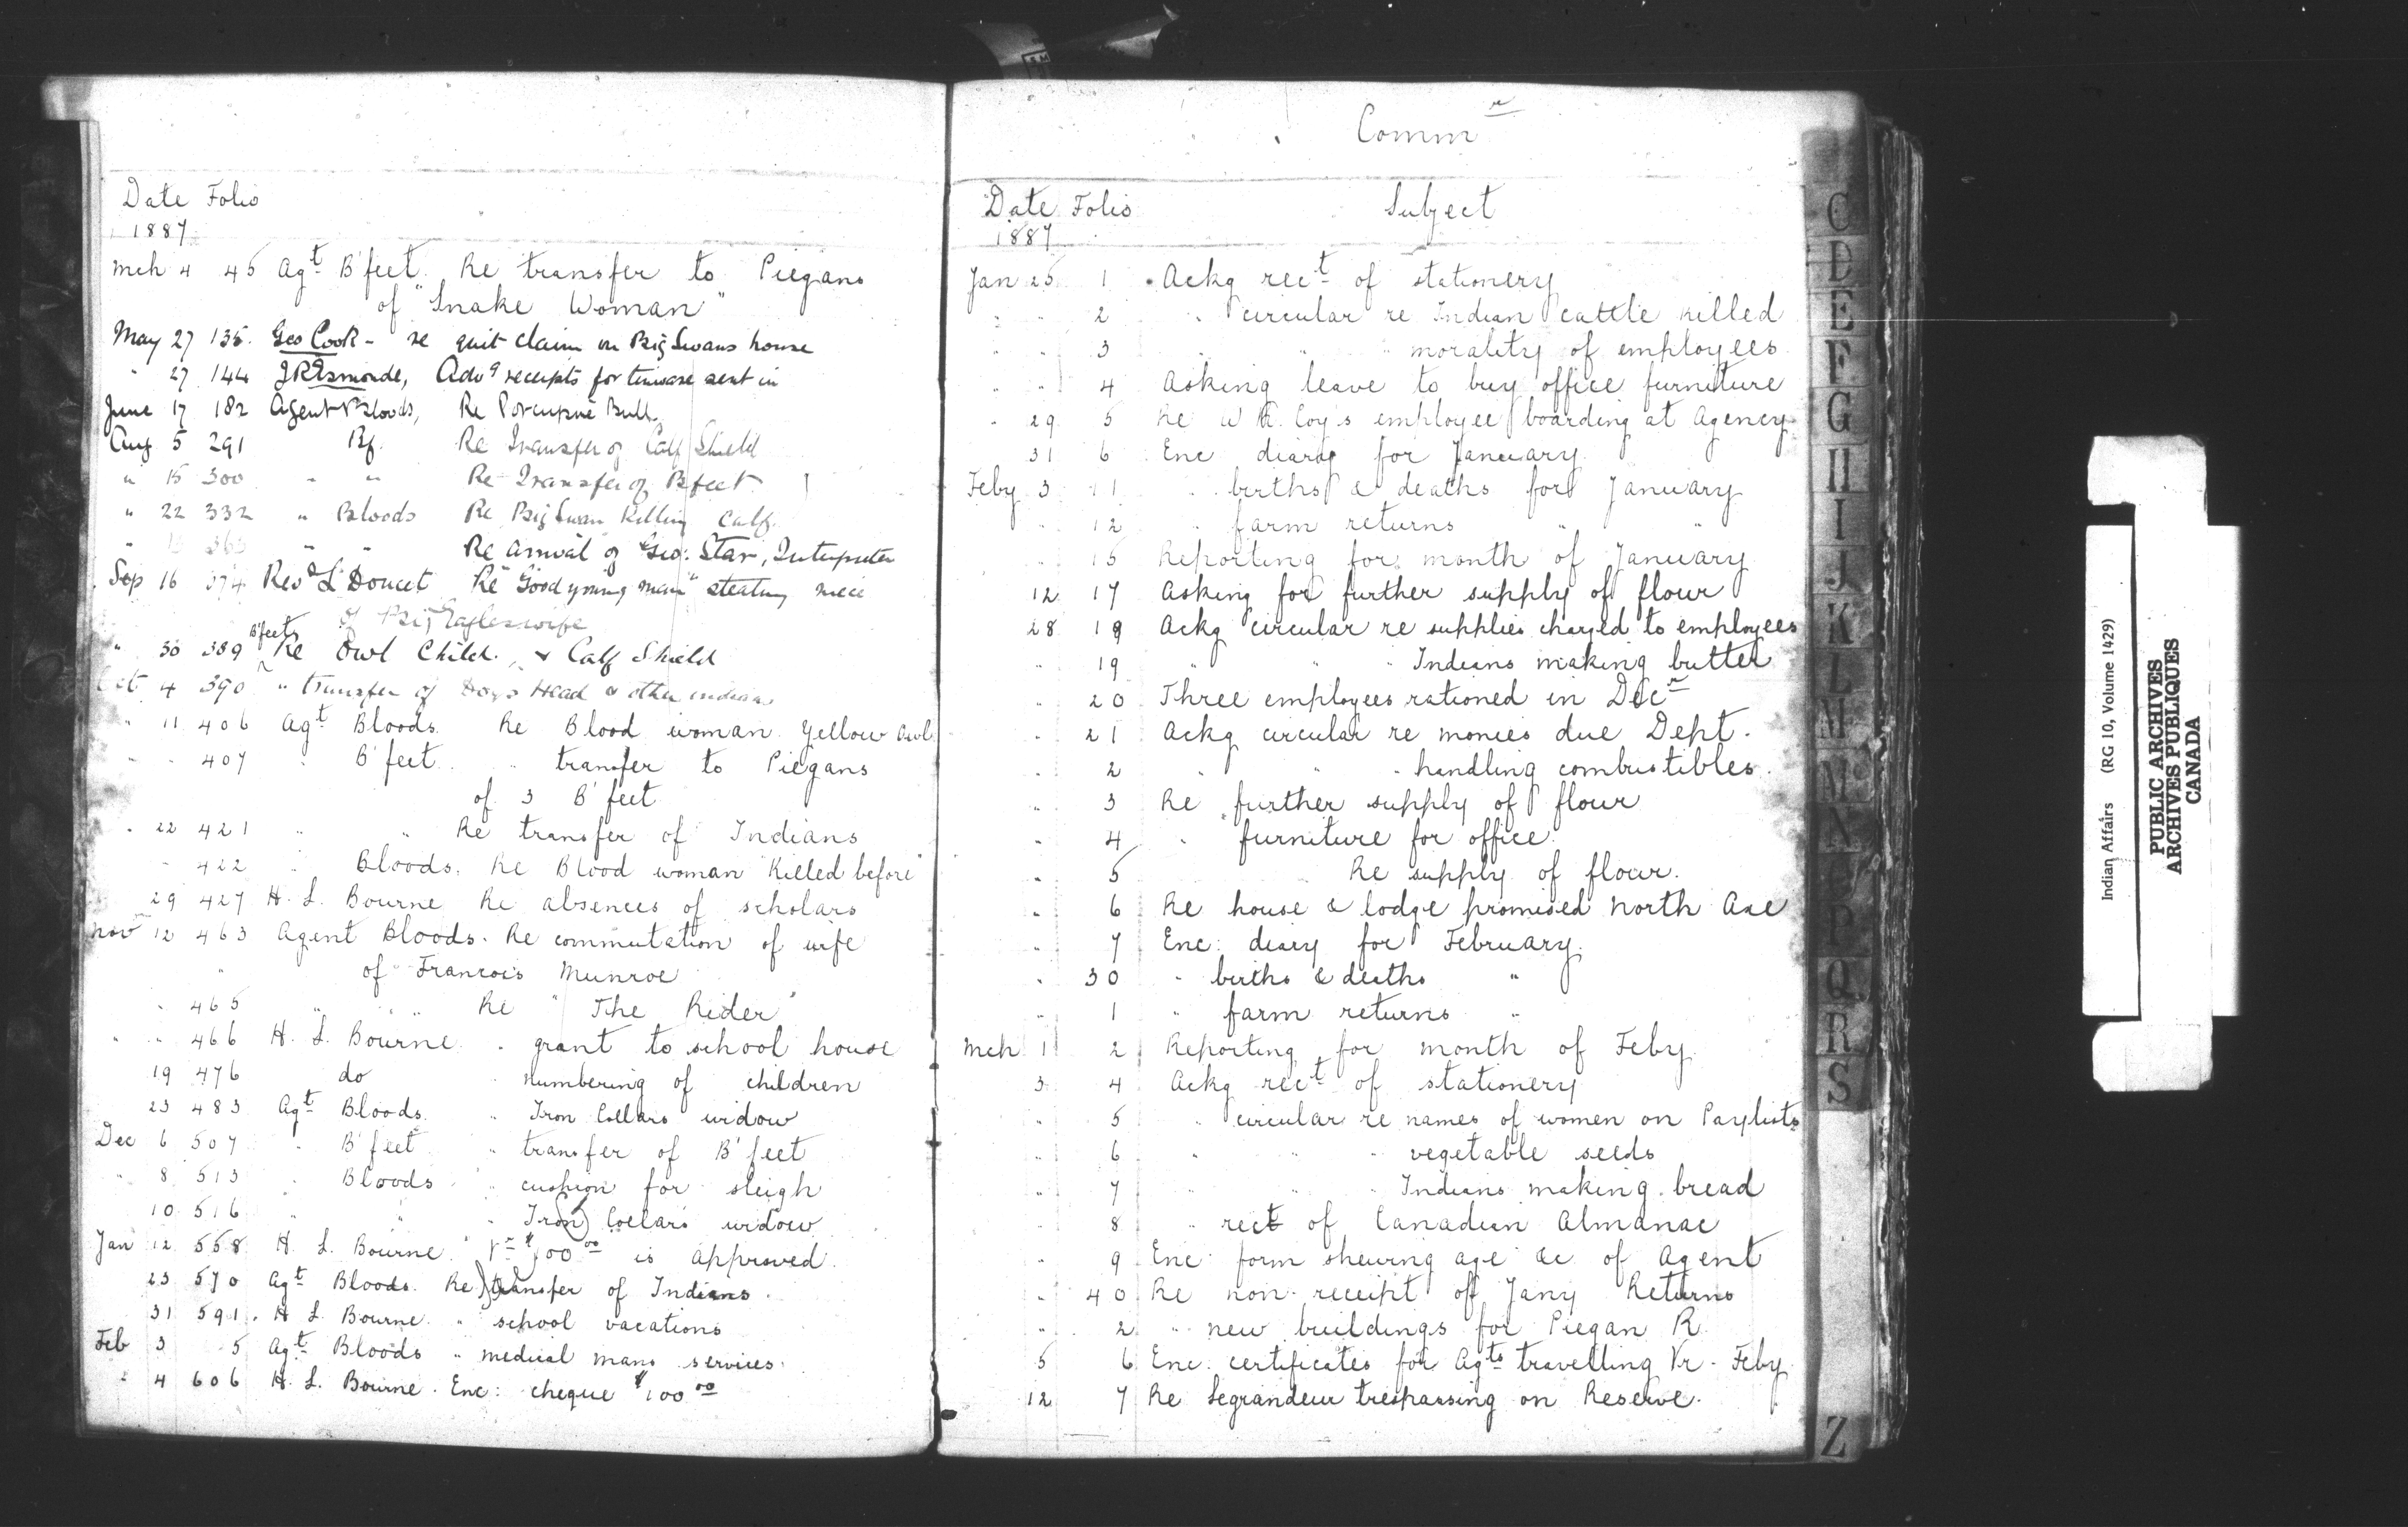 Date Folio
1887
Mch 4 45 Agt B'feet. Re transfer to Piegans
of "Snake Woman"
May 27 135. Geo Cook - re quit claim on Big Swans house
" 27 144 Advg receipts for tinware sent in
June 17 182 Agent Bloods, Re Porcupine Bull
Aug 5 291 Bf. Re Transfer of Calf Shield
" 15 300 " " Re Transfer of Bfeet
" 22 332 " Bloods Re Big Swan Killing Calf
" " " Re arrival of Geo. Star, Interpreter
Sep 16 374 Revd L Doucet Re "Good young man" stealing niece
of Big Eagles wife
" 30 389 Bfeet Re Owl Child. & Calf Shield
Oct 4 390 " transfer of Dogs Head & other indians
" 11 406 Agt Bloods. Re Blood woman Yellow Owl
" " 407 " B'feet. " transfer to Piegans
of 3 B'feet
" 22 421 " " Re transfer of Indians
" 422 " Bloods. Re Blood woman "Killed before"
29 427 H. L. Bourne Re absences of scholars
Nov 12 463 Agent Bloods. Re commutation of wife
" of Francois Munroe
" 465 " " Re "The Rider"
" " 466 H. L. Bourne. " grant to school house
19 476 do " numbering of children
23 483 Agt Bloods. " Iron Collars widow
Dec 6 507 " B'feet " transfer of B'feet
" 8 513 " Bloods " cushion for sleigh
10 516 " " " Iron Collars widow
Jan 12 558 H. L. Bourne. " Vr $100 00 is approved.
23 570 Agt Bloods. Re transfer of Indians.
31 591. H L. Bourne. " school vacations
Feb 3 5 Agt Bloods " medical mans services.
" 4 606 H. L. Bourne. Enc: cheque $100 00
Commr
Date Folio Subject
1887
Jan 25 1 Ackg rect of stationery
" " 2 " circular re Indian cattle killed
" " 3 " " " morality of employees
" " 4 Asking leave to buy office furniture
" 29 5 Re W R. Coy's employee boarding at Agency
31 6 Enc diary for January
Feby 3 11 " births & deaths for January
" 12 " farm returns " "
15 Reporting for month of January
12 17 Asking for further supply of flour
28 18 Ackg circular re supplies charged to employees
" 19 " " " Indians making butter
" 20 Three employees rationed in Decr
" 21 Ackg circular re monies due Dept.
" 2 " " " handling combustibles.
" 3 Re further supply of flour
" 4 " furniture for office
" 5 Re supply of flour.
" 6 Re house & lodge promised North Axe
" 7 Enc: diary for February.
" 30 " births & deaths "
" 1 " farm returns "
Mch 1 2 Reporting for month of Feby.
3 4 Ackg rect of stationery
" 5 " circular re names of women on Paylists
" 6 " " " vegetable seeds
" 7 " " " Indians making bread
" 8 " rect of Canadian Almanac
" 9 Enc form shewing age &c of Agent
" 40 Re non-receipt of Jany Returns
" 2 " new buildings for Piegan R.
5 6 Enc. certificates for Agts travelling Vr. Feby.
12 7 Re Legrandeur trespassing on Reserve.
C
D
E
F
G
H
I
J
K
L
M
Mc
N
P
Q
R
S
Z
Indian Affairs (RG 10, Volume 1429)
PUBLIC ARCHIVES
ARCHIVES PUBLIQUES
CANADA